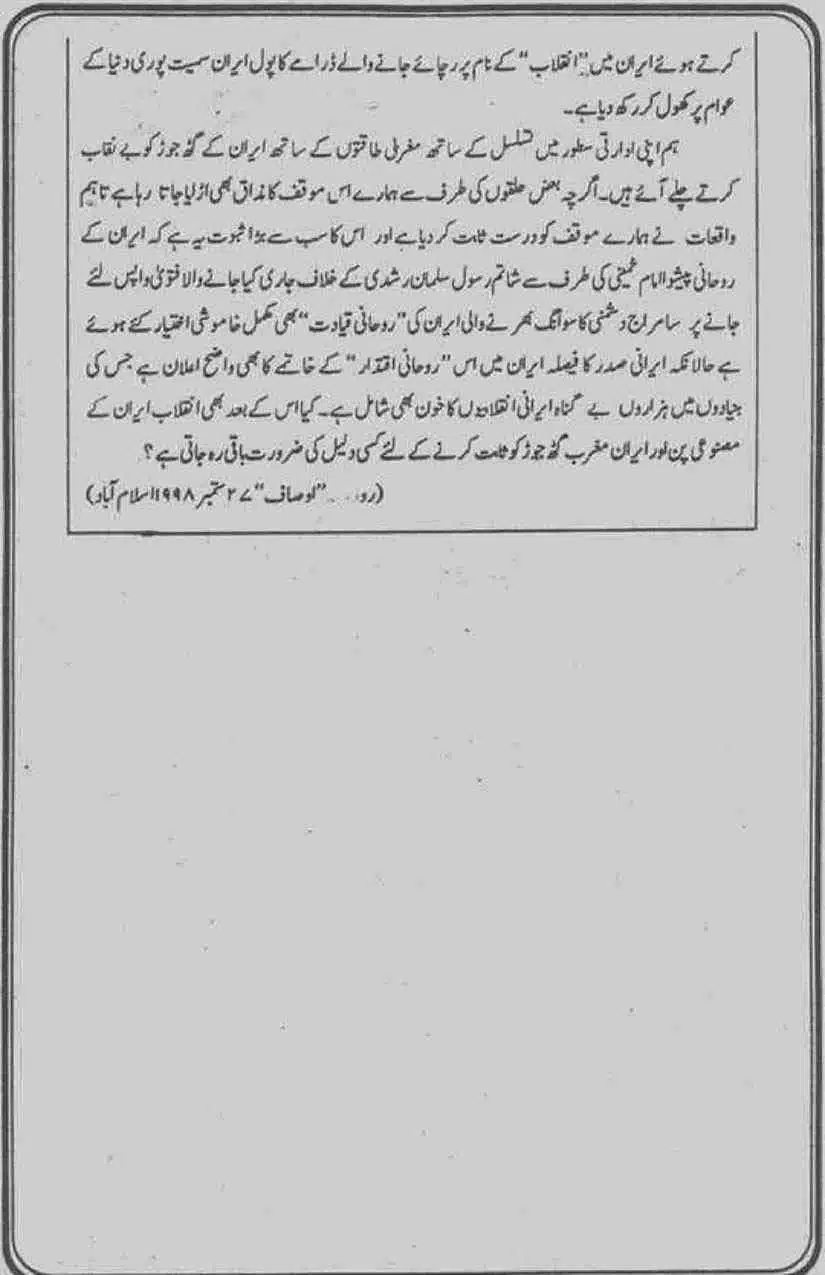 کرتے ہوئے ایران میں "انقلاب" کے نام پر رچائے جانے والے ڈرامے کا پول ایران سمیت پوری دنیا کے
عوام پر کھول کر رکھ دیا ہے۔
ہم اپنی ادارتی سطور میں تسلسل کے ساتھ مغربی طاقتوں کے ساتھ ایران کے گٹھ جوڑ کو بے نقاب
کرتے چلے آئے ہیں۔ اگرچہ بعض حلقوں کی طرف سے ہمارے اس موقف کا مذاق بھی اڑایا جاتا رہا ہے تاہم
واقعات نے ہمارے موقف کو درست ثابت کر دیا ہے اور اس کا سب سے بڑا ثبوت یہ ہے کہ ایران کے
روحانی پیشوا امام خمینی کی طرف سے شاتم رسول سلمان رشدی کے خلاف جاری کیا جانے والا فتویٰ واپس لئے
جانے پر سامراج دشمنی کا سوانگ بھرنے والی ایران کی "روحانی قیادت" بھی مکمل خاموشی اختیار کئے ہوئے
ہے حالانکہ ایرانی صدر کا فیصلہ ایران میں اس "روحانی اقتدار" کے خاتمے کا بھی واضح اعلان ہے جس کی
بنیادوں میں ہزاروں بے گناہ ایرانی انقلابیوں کا خون بھی شامل ہے۔ کیا اس کے بعد بھی انقلاب ایران کے
مصنوعی پن اور ایران مغرب گٹھ جوڑ کو ثابت کرنے کے لئے کسی دلیل کی ضرورت باقی رہ جاتی ہے؟
("اوصاف" ۲۷ ستمبر ۱۹۹۸ اسلام آباد)